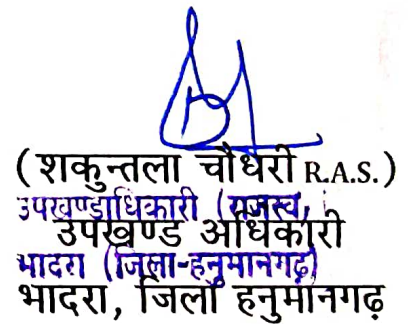 ( शकुन्तला चौधरी R.A.S.)
उपखण्डाधिकारी (राजस्व)
उपखण्ड अधिकारी
भादरा (जिला-हनुमानगढ़)
भादरा, जिला हनुमानगढ़